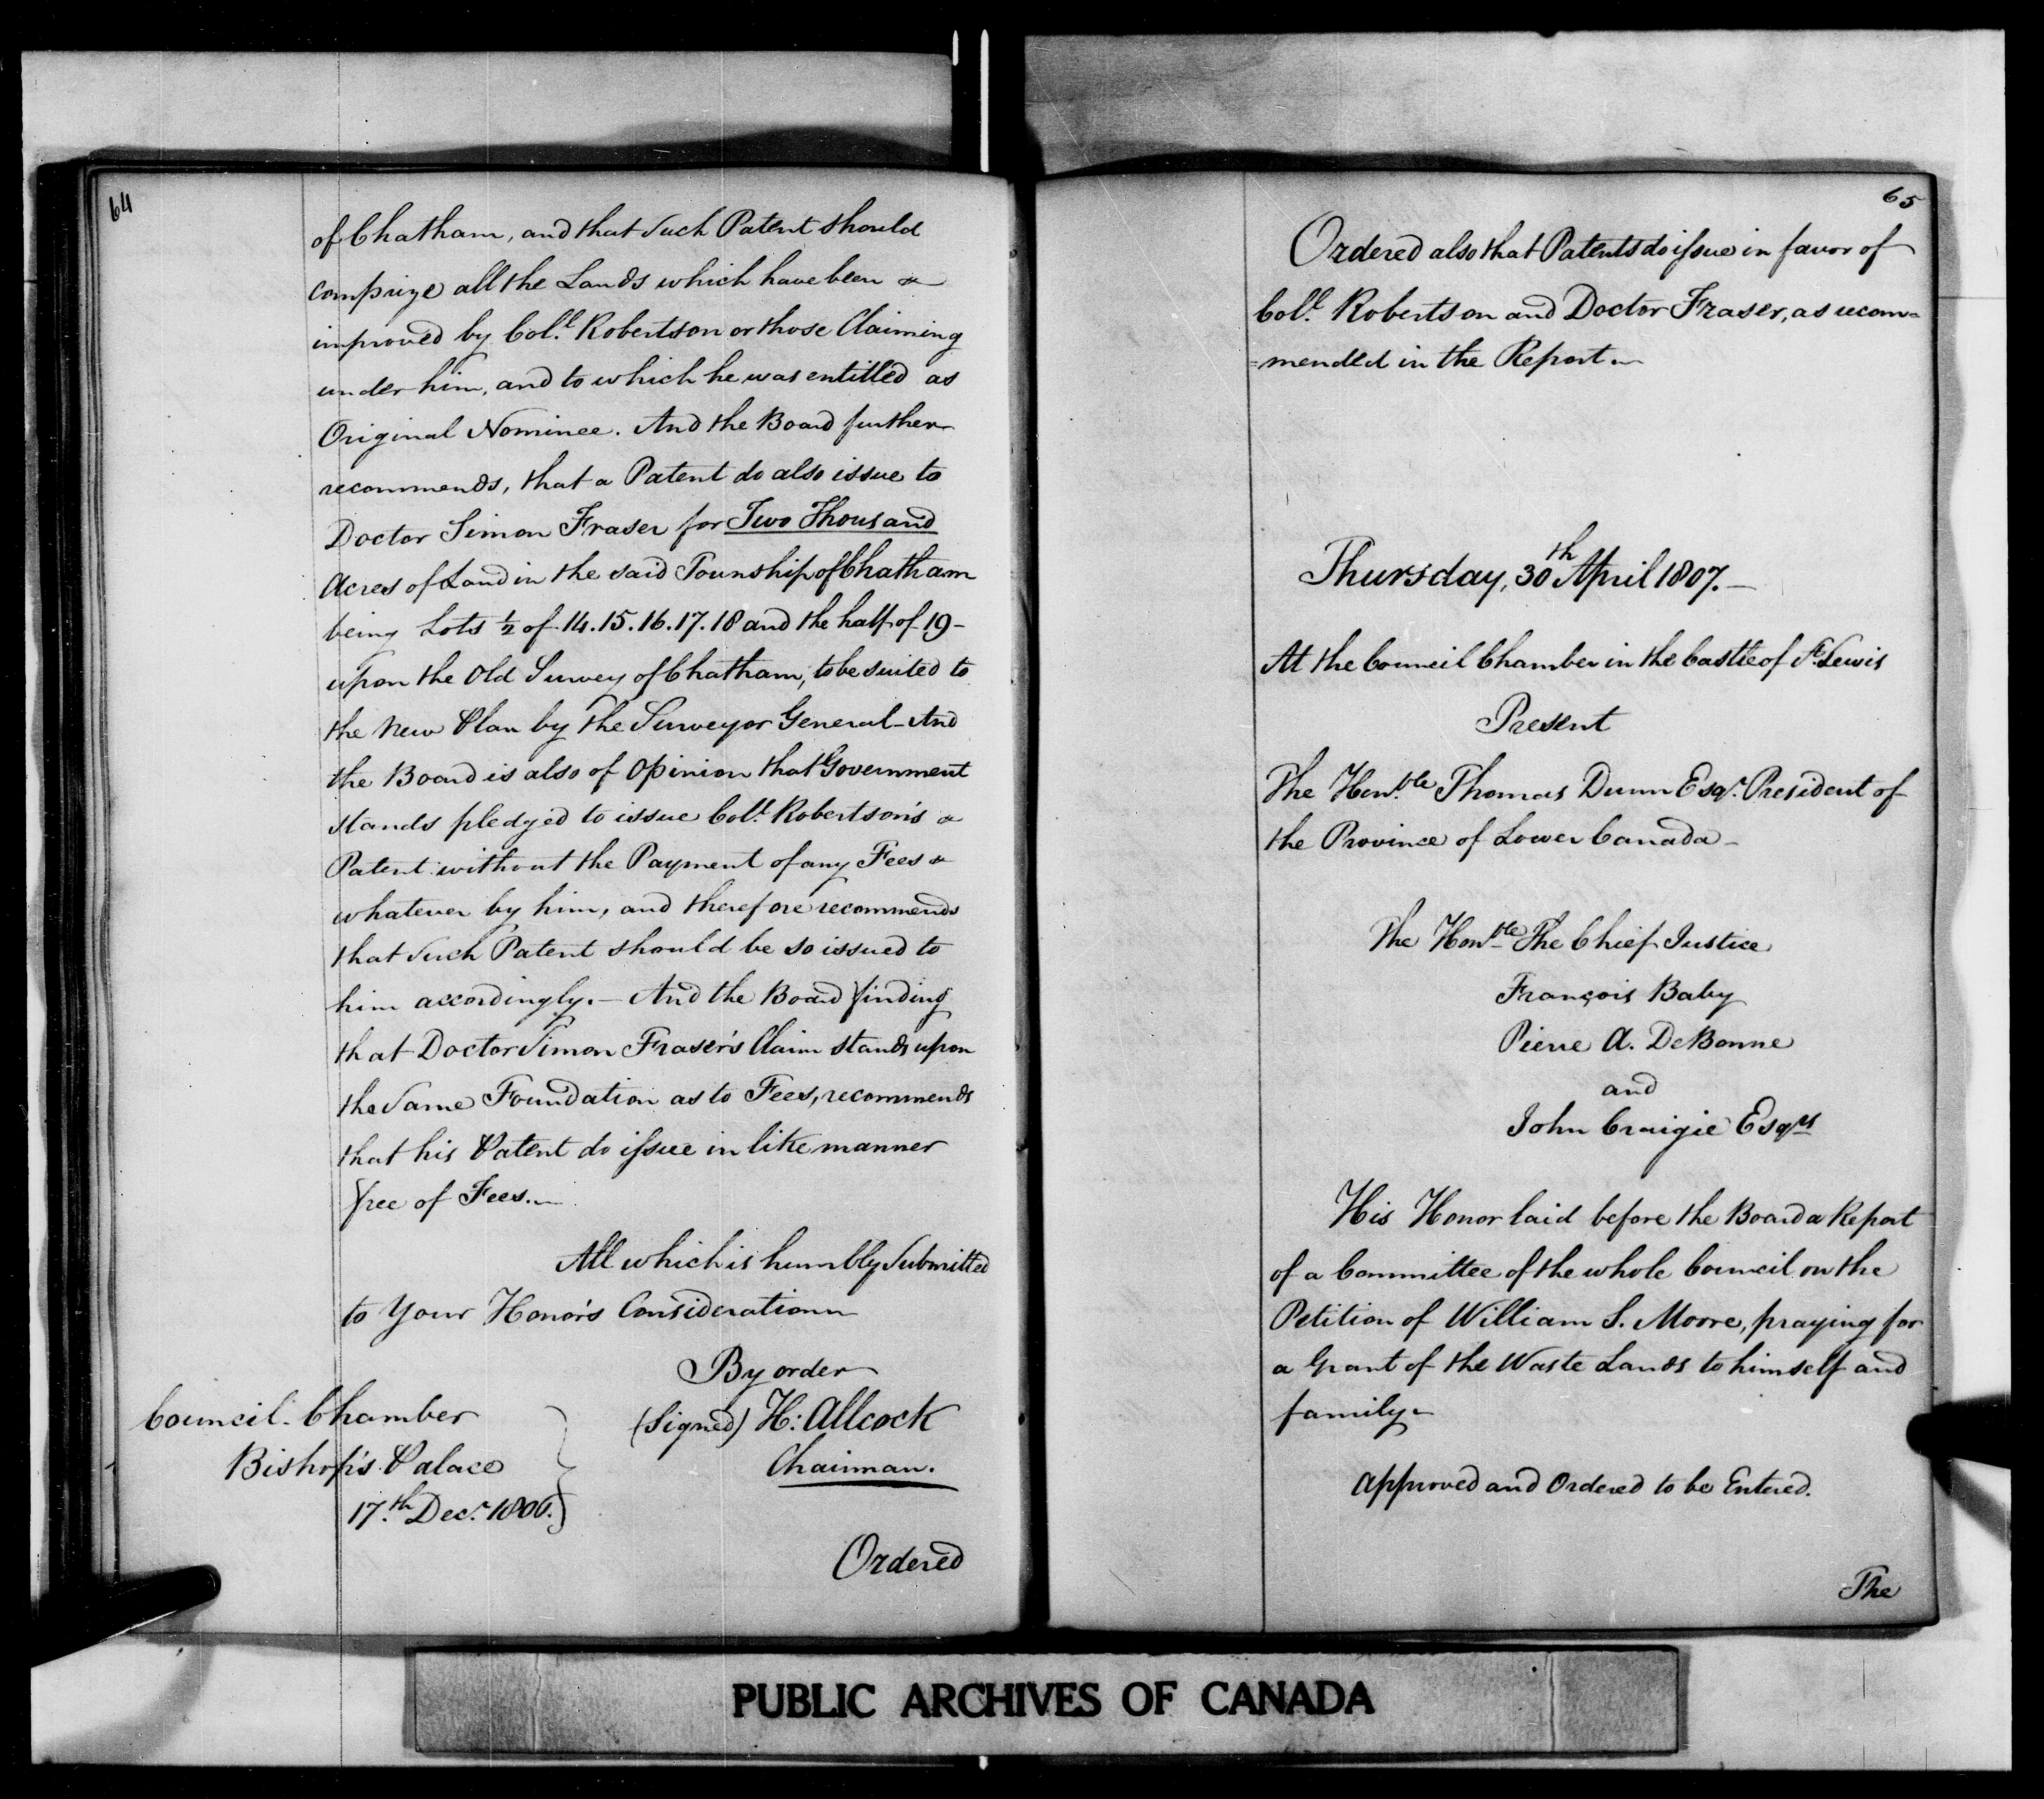 64
of Chatham, and that such Patent should
comprize all the Lands which have been
improved by Col.l Robertson or those Claiming
under him, and to which he was entitled as
Original Nominee. And the Board further
recommends, that a Patent do also issue to
Doctor Simon Fraser for Two Thousand
Acres of Land in the said Township of Chatham
being Lots ½ of 14. 15. 16. 17. 18 and the half of 19 -
upon the Old Survey of Chatham, to be suited to
the New Plan by the Surveyor General - And
the Board is also of Opinion that Government
stands pledged to issue Col.l Robertson's
Patent without the Payment of any Fees
whatever by him, and therefore recommends
that such Patent should be so issued to
him accordingly. — And the Board finding
that Doctor Simon Fraser's Claim stands upon
the same Foundation as to Fees, recommends
that his Patent do issue in like manner
free of Fees. —
All which is humbly Submitted
to Your Honor's Consideration
By order
(Signed) H: Allcock
Chairman.
Council Chamber
Bishop's Palace
17.th Dec.r 1806.
Ordered
65
Ordered also that Patents do issue in favor of
Col.l Robertson and Doctor Fraser, as recom=
=mended in the Report —
Thursday, 30th April 1807. —
At the Council Chamber in the Castle of St Lewis
Present
The Hon.ble Thomas Dunn Esqr. President of
the Province of Lower Canada -
The Honble The Chief Justice
François Baby
Pierre A. DeBonne
and
John Craigie Esqrs
His Honor laid before the Board a Report
of a Committee of the whole Council on the
Petition of William S. Morre, praying for
a Grant of the Waste Lands to himself and
family
Approved and Ordered to be Entered.
The
PUBLIC ARCHIVES OF CANADA